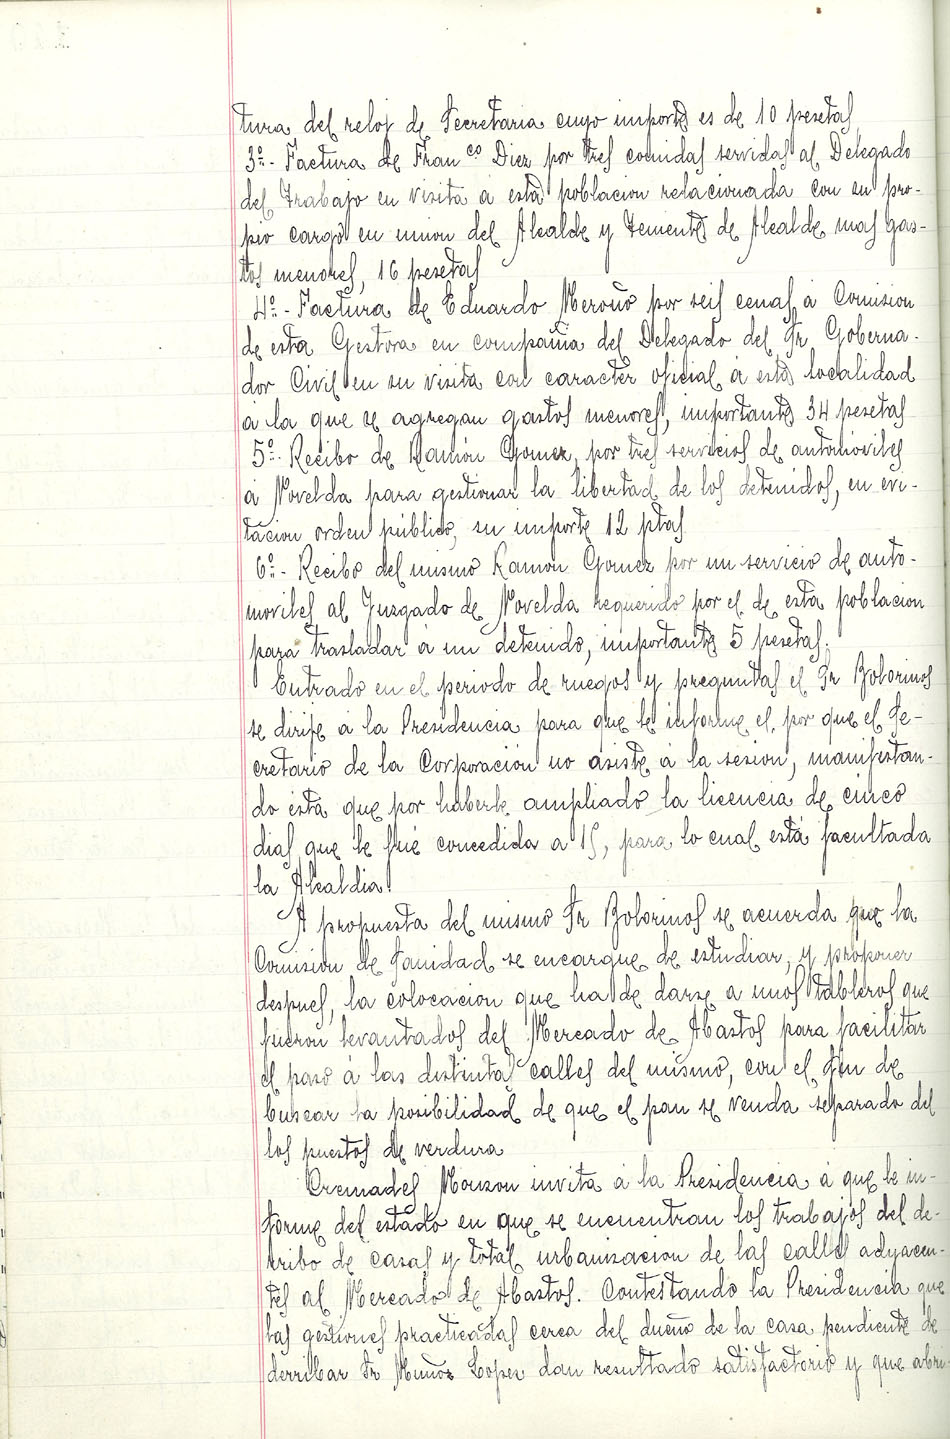 tura del reloj de Secretaria cuyo importe es de 10 pesetas
3º.- Factura de Franco Diez por tres comidas servidas al Delegado
del Trabajo en visita á esta poblacion relacionada con su pro-
pio cargo en union del Alcalde y Teniente de Alcalde mas gas-
tos menores, 16 pesetas
4º.- Factura de Eduardo Meroño por seis cenas á Comision
de esta Gestora en compañia del Delegado del Sr. Goberna-
dor Civil en su visita con caracter oficial á esta localidad
á la que se agregan gastos menores, importante 34 pesetas
5º.- Recibo de Ramón Gomez, por tres servicios de automóviles
á Novelda para gestionar la libertad de los detenidos, en evi-
tacion orden público, su importe 12 ptas
6º.- Recibo del mismo Ramón Gomez por un servicio de auto-
moviles al Juzgado de Novelda requerido por el de esta poblacion
para trasladar á un detenido, importante 5 pesetas.
Entrado en el periodo de ruegos y preguntas el Sr Bolorinos
se dirije á la Presidencia para que le informe el por que el Se-
cretario de la Corporación no asiste á la sesion, manifestan-
do ésta que por haberle ampliado la licencia de cinco
dias que le fué concedida a 15, para lo cual está facultada
la Alcaldia.
A propuesta del mismo Sr Bolorinos se acuerda que la
Comision de Sanidad se encargue de estudiar, y proponer
despues, la colocacion que ha de darse a unos tableros que
fueron levantados del Mercado de Abastos para facilitar
el paso á las distintas calles del mismo, con el fin de
buscar la posibilidad de que el pan se venda separado del
los puestos de verdura
Cremades Monzon invita á la Presidencia á que le in-
forme del estado en que se encuentran los trabajos del de-
rribo de casas y total urbanizacion de las calles adyacen-
tes al Mercado de Abastos. Contestando la Presidencia que
las gestiones practicadas cerca del dueño de la casa pendiente de
derribar Sr Muñoz Lopez dan resultado satisfactorio y que abri-